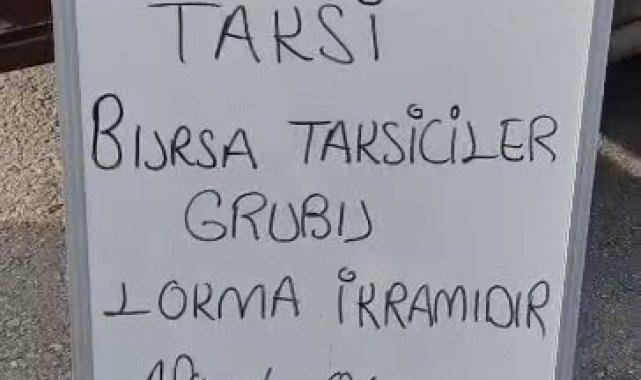 TAKSİ
BURSA TAKSİCİLER
GRUBU
LOKMA İKRAMIDIR